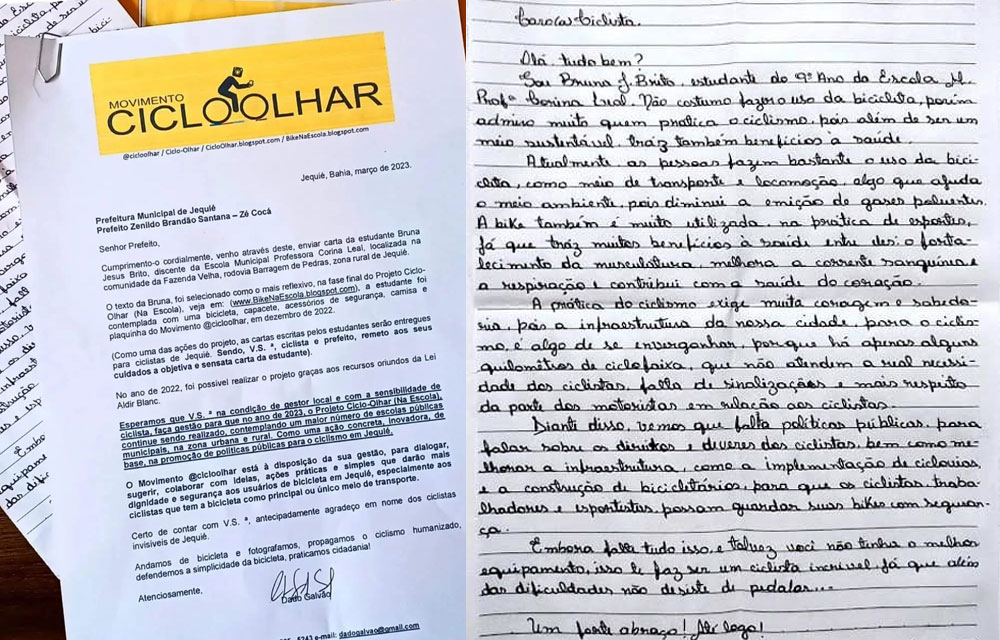 MOVIMENTO
CICLOOLHAR
@cicloolhar / Ciclo-Olhar / CicloOlhar.blogspot.com / BikeNaEscola.blogspot.com
Jequié, Bahia, março de 2023.
Prefeitura Municipal de Jequié
Prefeito Zenildo Brandão Santana – Zé Cocá
Senhor Prefeito,
Cumprimento-o cordialmente, venho através deste, enviar carta da estudante Bruna
Jesus Brito, discente da Escola Municipal Professora Corina Leal, localizada na
comunidade da Fazenda Velha, rodovia Barragem de Pedras, zona rural de Jequié.
O texto da Bruna, foi selecionado como o mais reflexivo, na fase final do Projeto Ciclo-
Olhar (Na Escola), veja em: (www.BikeNaEscola.blogspot.com), a estudante foi
contemplada com uma bicicleta, capacete, acessórios de segurança, camisa e
plaquinha do Movimento @cicloolhar, em dezembro de 2022.
(Como uma das ações do projeto, as cartas escritas pelos estudantes serão entregues
para ciclistas de Jequié. Sendo, V.S. ª, ciclista e prefeito, remeto aos seus
cuidados a objetiva e sensata carta da estudante).
No ano de 2022, foi possível realizar o projeto graças aos recursos oriundos da Lei
Aldir Blanc.
Esperamos que V.S. ª na condição de gestor local e com a sensibilidade de
ciclista, faça gestão para que no ano de 2023, o Projeto Ciclo-Olhar (Na Escola),
continue sendo realizado, contemplando um maior número de escolas públicas
municipais, na zona urbana e rural. Como uma ação concreta, inovadora, de
base, na promoção de políticas públicas para o ciclismo em Jequié.
O Movimento @cicloolhar está à disposição da sua gestão, para dialogar,
sugerir, colaborar com ideias, ações práticas e simples que darão mais
dignidade e segurança aos usuários de bicicleta em Jequié, especialmente aos
ciclistas que tem a bicicleta como principal ou único meio de transporte.
Certo de contar com V.S. ª, antecipadamente agradeço em nome dos ciclistas
invisíveis de Jequié.
Andamos de bicicleta e fotografamos, propagamos o ciclismo humanizado,
defendemos a simplicidade da bicicleta, praticamos cidadania!
Atenciosamente,
Dado Galvão
5243 e-mail: dadogalvao@gmail.com
Caro(a) Ciclista.
Olá, tudo bem?
Sou Bruna J. Brito, estudante do 9º Ano da Escola M.
Profª Corina Leal. Não costumo fazer o uso da bicicleta, porém
admiro muito quem pratica o ciclismo, pois além de ser um
meio sustentável, traiz também benefícios à saúde.
Atualmente, as pessoas fazem bastante o uso da bici-
cleta, como meio de transporte e locomoção, algo que ajuda
o meio ambiente, pois diminui a emição de gases poluentes.
A bike também é muito utilizada, na prática de esportes,
já que traiz muitos benefícios à saúde entre eles: o forta-
lecimento da musculatura melhora a corrente sanguínea e
a respiração e contribui com a saúde do coração.
A prática do ciclismo exige muita coragem e sabedo-
ria, pois a infraestrutura da nossa cidade, para o ciclis-
mo, é algo de se envergonhar, porque há apenas alguns
quilômetros de ciclofaixa, que não atendem a real necessi-
dade dos ciclistas, falta de sinalizações e mais respeito
da parte dos motoristas em relação aos ciclistas.
Diante disso, vemos que falta políticas públicas, para
falar sobre os direitos e deveres dos ciclistas, bem como me-
lhorar a infraestrutura, como a implementação de ciclovias,
e a construção de bicicletários, para que os ciclistas, traba-
lhadores e esportistas, possam guardar suas bikes com seguran-
ça.
Embora falta tudo isso, e talvez você não tenha o melhor
equipamento, isso te faz ser um ciclista incrível, já que além
das dificuldades não desiste de pedalar...
Um forte abraço! Até logo!